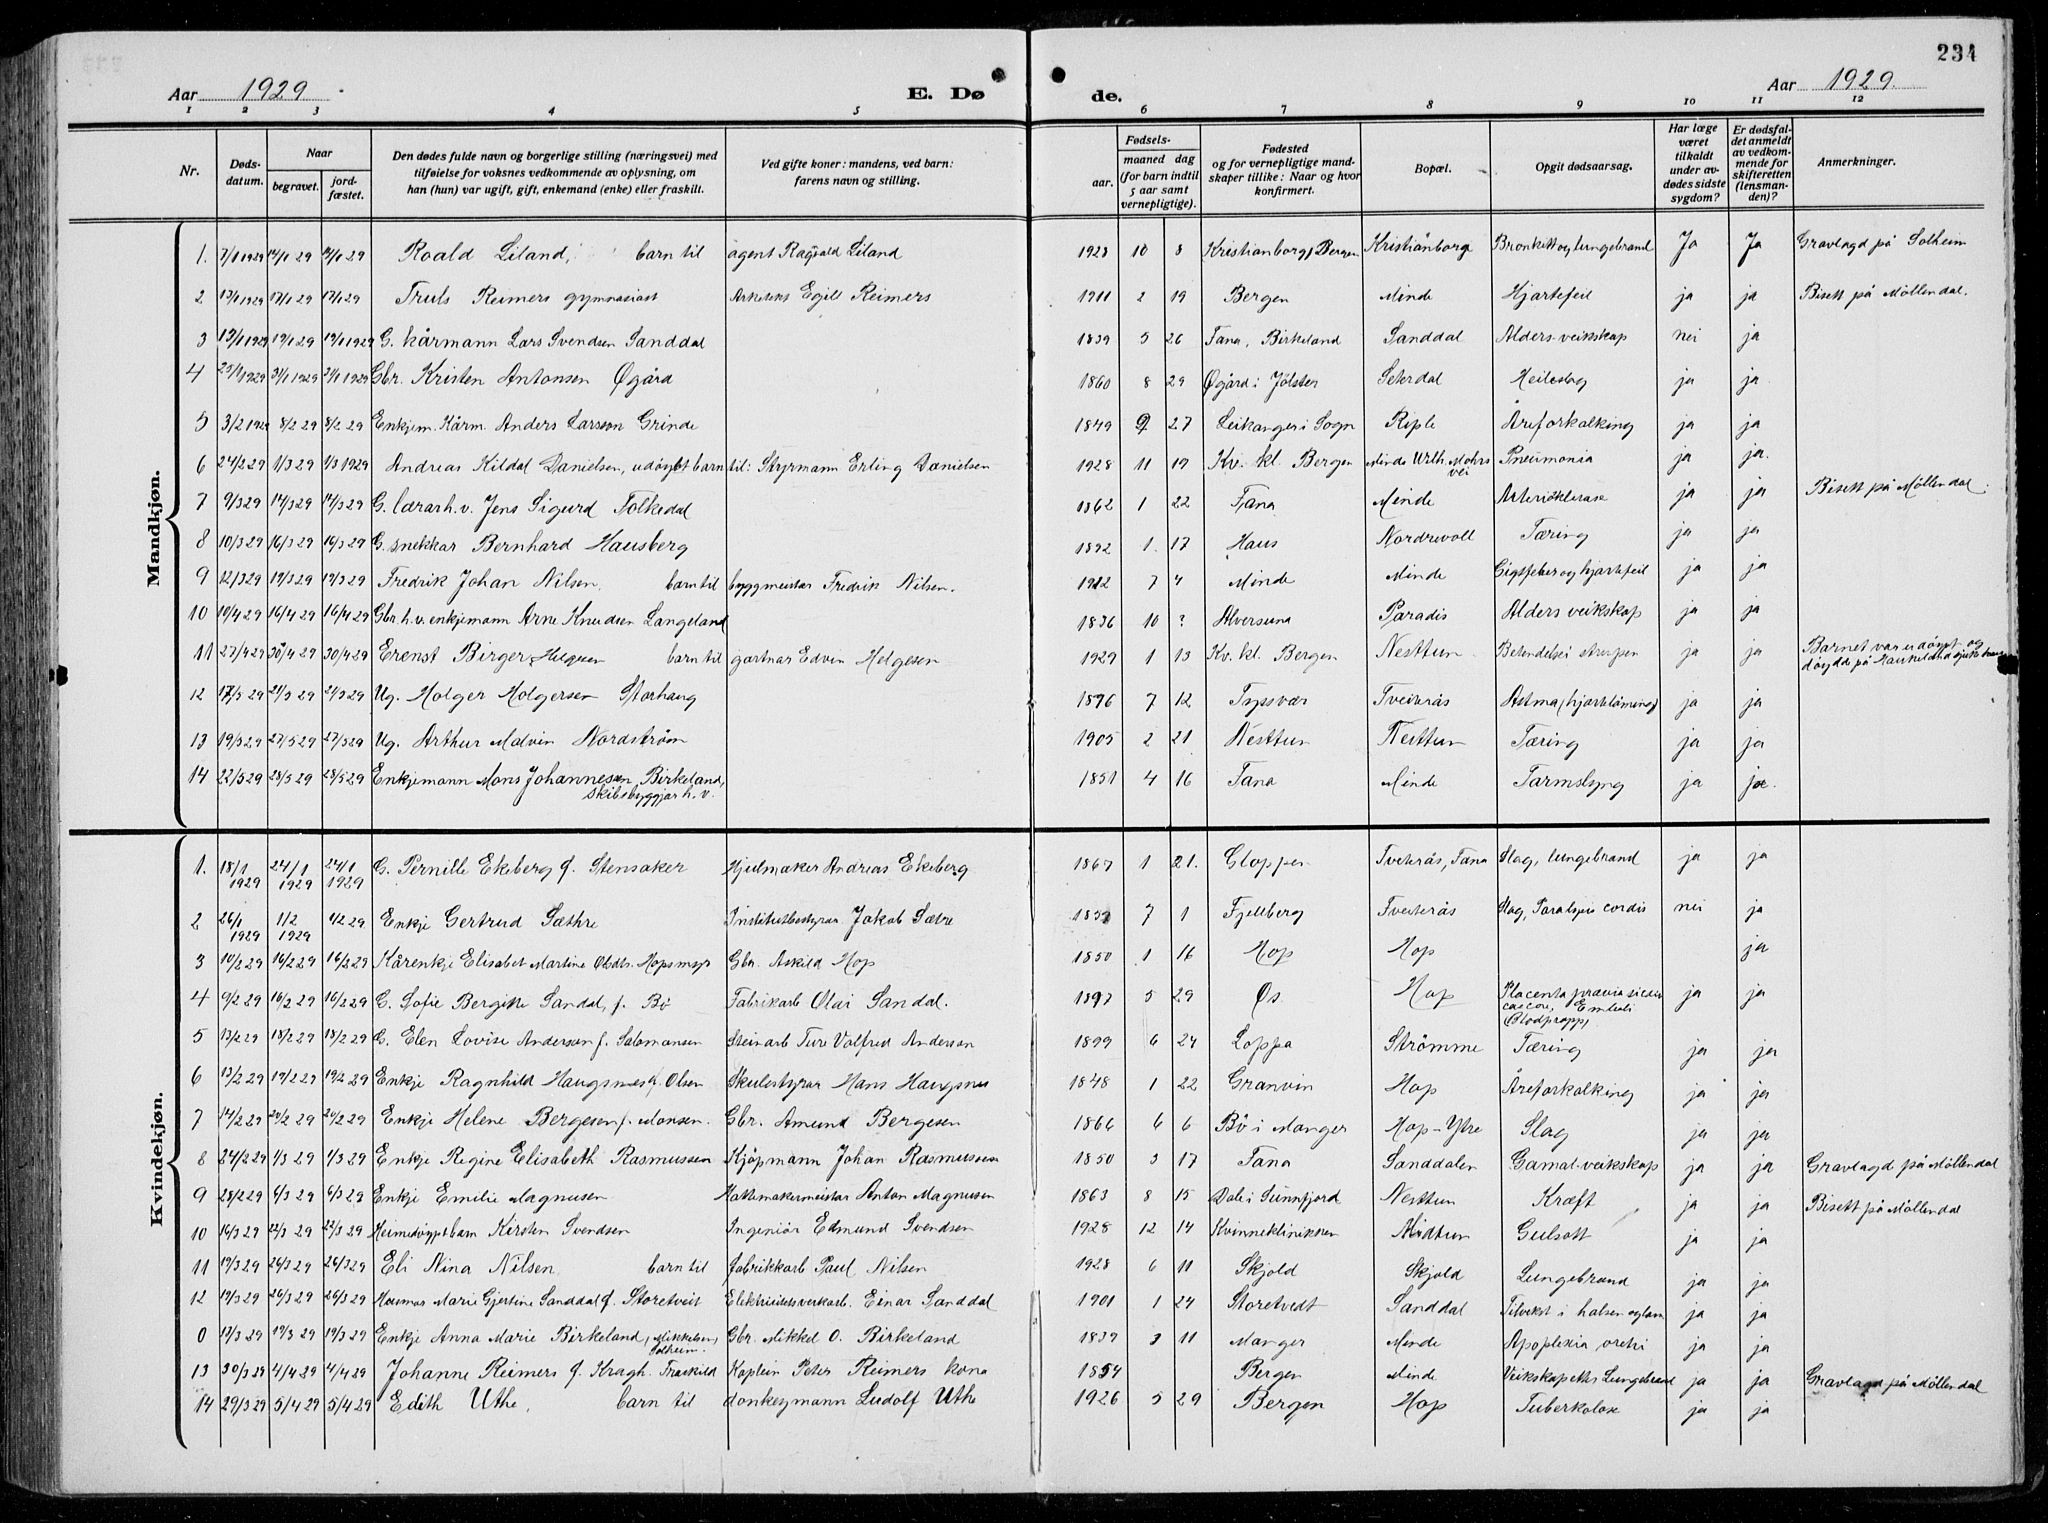 234
Aar 1929 E. Dø de. Aar 1929.
1 2 3 4 5 6 7 8 9 10 11 12
Nr. Døds-datum. Naar begravet. jord-fæstet. Den dødes fulde navn og borgerlige stilling (næringsvei) med tilføielse for voksnes vedkommende av oplysning, om han (hun) var ugift, gift, enkemand (enke) eller fraskilt. Ved gifte koner: mandens, ved barn: farens navn og stilling. Fødsels- aar. maaned dag (for barn indtil 5 aar samt vernepligtige). Fødested og for vernepligtige mandskaper tillike: Naar og hvor konfirmert. Bopæl. Opgit dødsaarsag. Har læge været tilkaldt under avdødes sidste sygdom? Er dødsfaldet anmeldt av vedkommende for skifteretten (lensmanden)? Anmerkninger.
Mandkjøn.
1. 7/1 1929 14/1 29 14/1 29 Roald Liland, barn til agent Ragvald Liland 1928 10 8 Kristianborg, Bergen Kristianborg Bronkitt og lungebrand Ja Ja Gravlagd på Solheim
2 13/1 1929 17/1 29 17/1 29 Truls Reimers gymnasiast Arkitekt Egill Reimers 1911 2 19 Bergen Minde Hjartefeil ja ja Bisett på Möllendal.
3 13/1 1929 19/1 29 19/1 1929 G. kårmann Lars Svendsen Sanddal 1839 5 26 Fana, Birkeland Sanddal Alders-veikskap nei ja
4 1929 31/1 1929 1929 Gbr. Kristen Antonsen Øgård 1860 8 29 Øgård i Jølster Seterdal Heileslag ja ja.
5 3/2 1929 8/2 29 8/2 29 Enkjem. Kårm. Anders Larsson Grinde 1849 9 27 Leikanger i Sogn Riple Åreforkalking ja ja
6 24/2 29 1/3 29 1/3 1929 Andreas Kildal Danielsen, udöybt barn til: Styrmann Erling Danielsen 1928 11 19 Kv. kl. Bergen Minde Wilh. Mohrs vei Pneumonia ja ja.
7 9/3 29 14/3 29 14/3 29 G. lærar h.v. Jens Sigurd Folkedal 1862 1 22 Fana Minde Arterioklerose ja ja Bisett på Möllendal.
8 10/3 29 16/3 29 16/3 29 G. snekkar Bernhard Hausberg 1892 1. 17 Haus Nordrevoll Tæring ja ja
9 12/3 29 19/3 29 19/3 29 Fredrik Johan Nilsen. barn til byggmeister Fredrik Nilsen. 1912 7 4 Minde Minde Gigtfeber og hjartefeil ja ja
10 10/4 29 16/4 29 16/4 29 Gbr. h.v. enkjemann Arne Knudsen Langeland 1836 10 ? Alversund Paradis Alders veikskap ja ja
11 27/4 29 30/4 29 30/4 29 Erenst Birger Helgesen barn til gartnar Edvin Helgesen 1929 1 13 Kv. kl. Bergen Nesttun Betendelse i strupen ja ja Barnet var udöypt og döydde på Haukeland
12 17/5 29 21/5 29 21/5 29 Ug. Holger Holgersen Storhaug 1896 7 12 Tysvær Tveiterås Astma (hjartelåming) ja ja
13 19/5 29 27/5 29 27/5 29 Ug. Arthur Malvin Nordstrøm 1905 2 21 Nesttun Nesttun Tæring ja ja
14 22/5 29 28/5 29 28/5 29 Enkjemann Mons Johannesen Birkeland, skibsbyggjar h. v. 1851 4 16 Fana Minde Tarmslyng ja ja.
Kvindekjøn.
1. 18/1 1929 24/1 1929 24/1 1929 G. Pernille Ekeberg f. Stensaker Hjulmaker Andreas Ekeberg 1867 1 21. Gloppen Tveiterås, Fana Slag, lungebrand ja ja
2 26/1 1929 1/2 1929 1/2 29 Enkje Gertrud Sæthre Institutbestyrar Jakob Sætre 7 1 Fjellberg Tveiterås Slag, Paralysis cordis nei ja
3 10/2 29 16/2 29 16/2 29 Kårenkje Elisabet Martine Olsdtr. Hopsmyr Gbr. Askild Hop 1850 1 16 Hop Hop ja
4 9/2 29 16/2 29 16/2 29 G. Sofie Bergitte Sandal, f. Bö Fabrikarb Olai Sandal. 1897 5 29 Os Hop Placenta prævia Emboli (Blodpropp) ja ja
5 13/2 29 18/2 29 18/2 29 G. Elen Lovise Anderson f. Salomonsen Steinarb Ture Valfred Anderson 1899 6 24 Loppa Strömme Tæring ja ja
6 13/2 29 19/2 29 19/2 29 Enkje Ragnhild Haugsnes f. Olsen Skulestyrar Hans Haugsnes 1848 1 22 Granvin Hop Åreforkalking ja ja
7 14/2 29 20/2 29 20/2 29 Enkje Helene Bergesen f. Monsen. Gbr. Amund Bergesen 1866 6 6 Bö i Manger Hop-Ytre Slag ja ja
8 24/2 29 1/3 29 1/3 29 Enkje Regine Elisabeth Rasmussen Kjöpmann Johan Rasmussen 1850 3 17 Fana Sanddalen Gamal-veikskap ja ja Gravlagd på Möllendal
9 28/2 29 6/3 29 6/3 29 Enkje Emilie Magnusen Hattemakermeistar Anton Magnusen 1863 8 15 Dale i Sunnfjord Nesttun Kræft ja ja Bisett på Möllendal
10 16/3 29 22/3 29 22/3 29 Heimedöypt barn Kirsten Svendsen Ingeniör Edmund Svendsen 1928 12 14 Kvinneklinikken Midtun Gulsott ja ja
11 19/3 29 26/3 29 26/3 29 Eli Nina Nilsen barn til fabrikkarb Paul Nilsen 1928 6 11 Skjold Skjold Lungebrand ja ja
12 19/3 29 26/3 29 26/3 29 Marie Gjertine Sanddal f. Storetveit Elektrisitetsverkarb. Einar Sanddal 1901 1 24 Storetvedt Sanddal Tilvekst i halsen ja ja
0 13/3 29 19/3 29 19/3 29 Enkje Anna Marie Birkeland, Mikkelsen, Solheim. Gbr. Mikkel O. Birkeland 1839 3 11 Manger Minde Apoplexia cerebri ja ja
13 30/3 29 4/4 29 4/4 29 Johanne Reimers f. Kragh. Fraskild Kaptein Peter Reimers kona 1854 Bergen Minde Veikskap etter Lungebrand ja ja Gravlagd på Möllendal
14 29/3 29 5/4 29 5/4 29 Edith Uthe, barn til donkeymann Ludolf Uthe 1926 5 29 Bergen Hop Tuberkolose ja ja